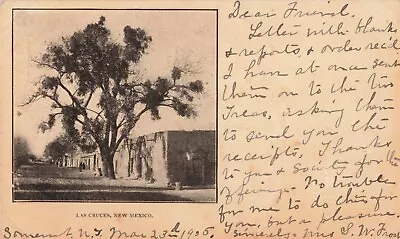 Dear Friend.
Letter with blanks
& reports, & order rec'd
I have at once sent
them on to the two
Treas, asking them
to send you the
receipts. Thanks
to you & Society for the
offerings. No trouble
for me to do this for
you, but a pleasure.
Sincerely. Mrs S. W.
LAS CRUCES, NEW MEXICO.
Somerset, N.Y. Mar 23d 1905.